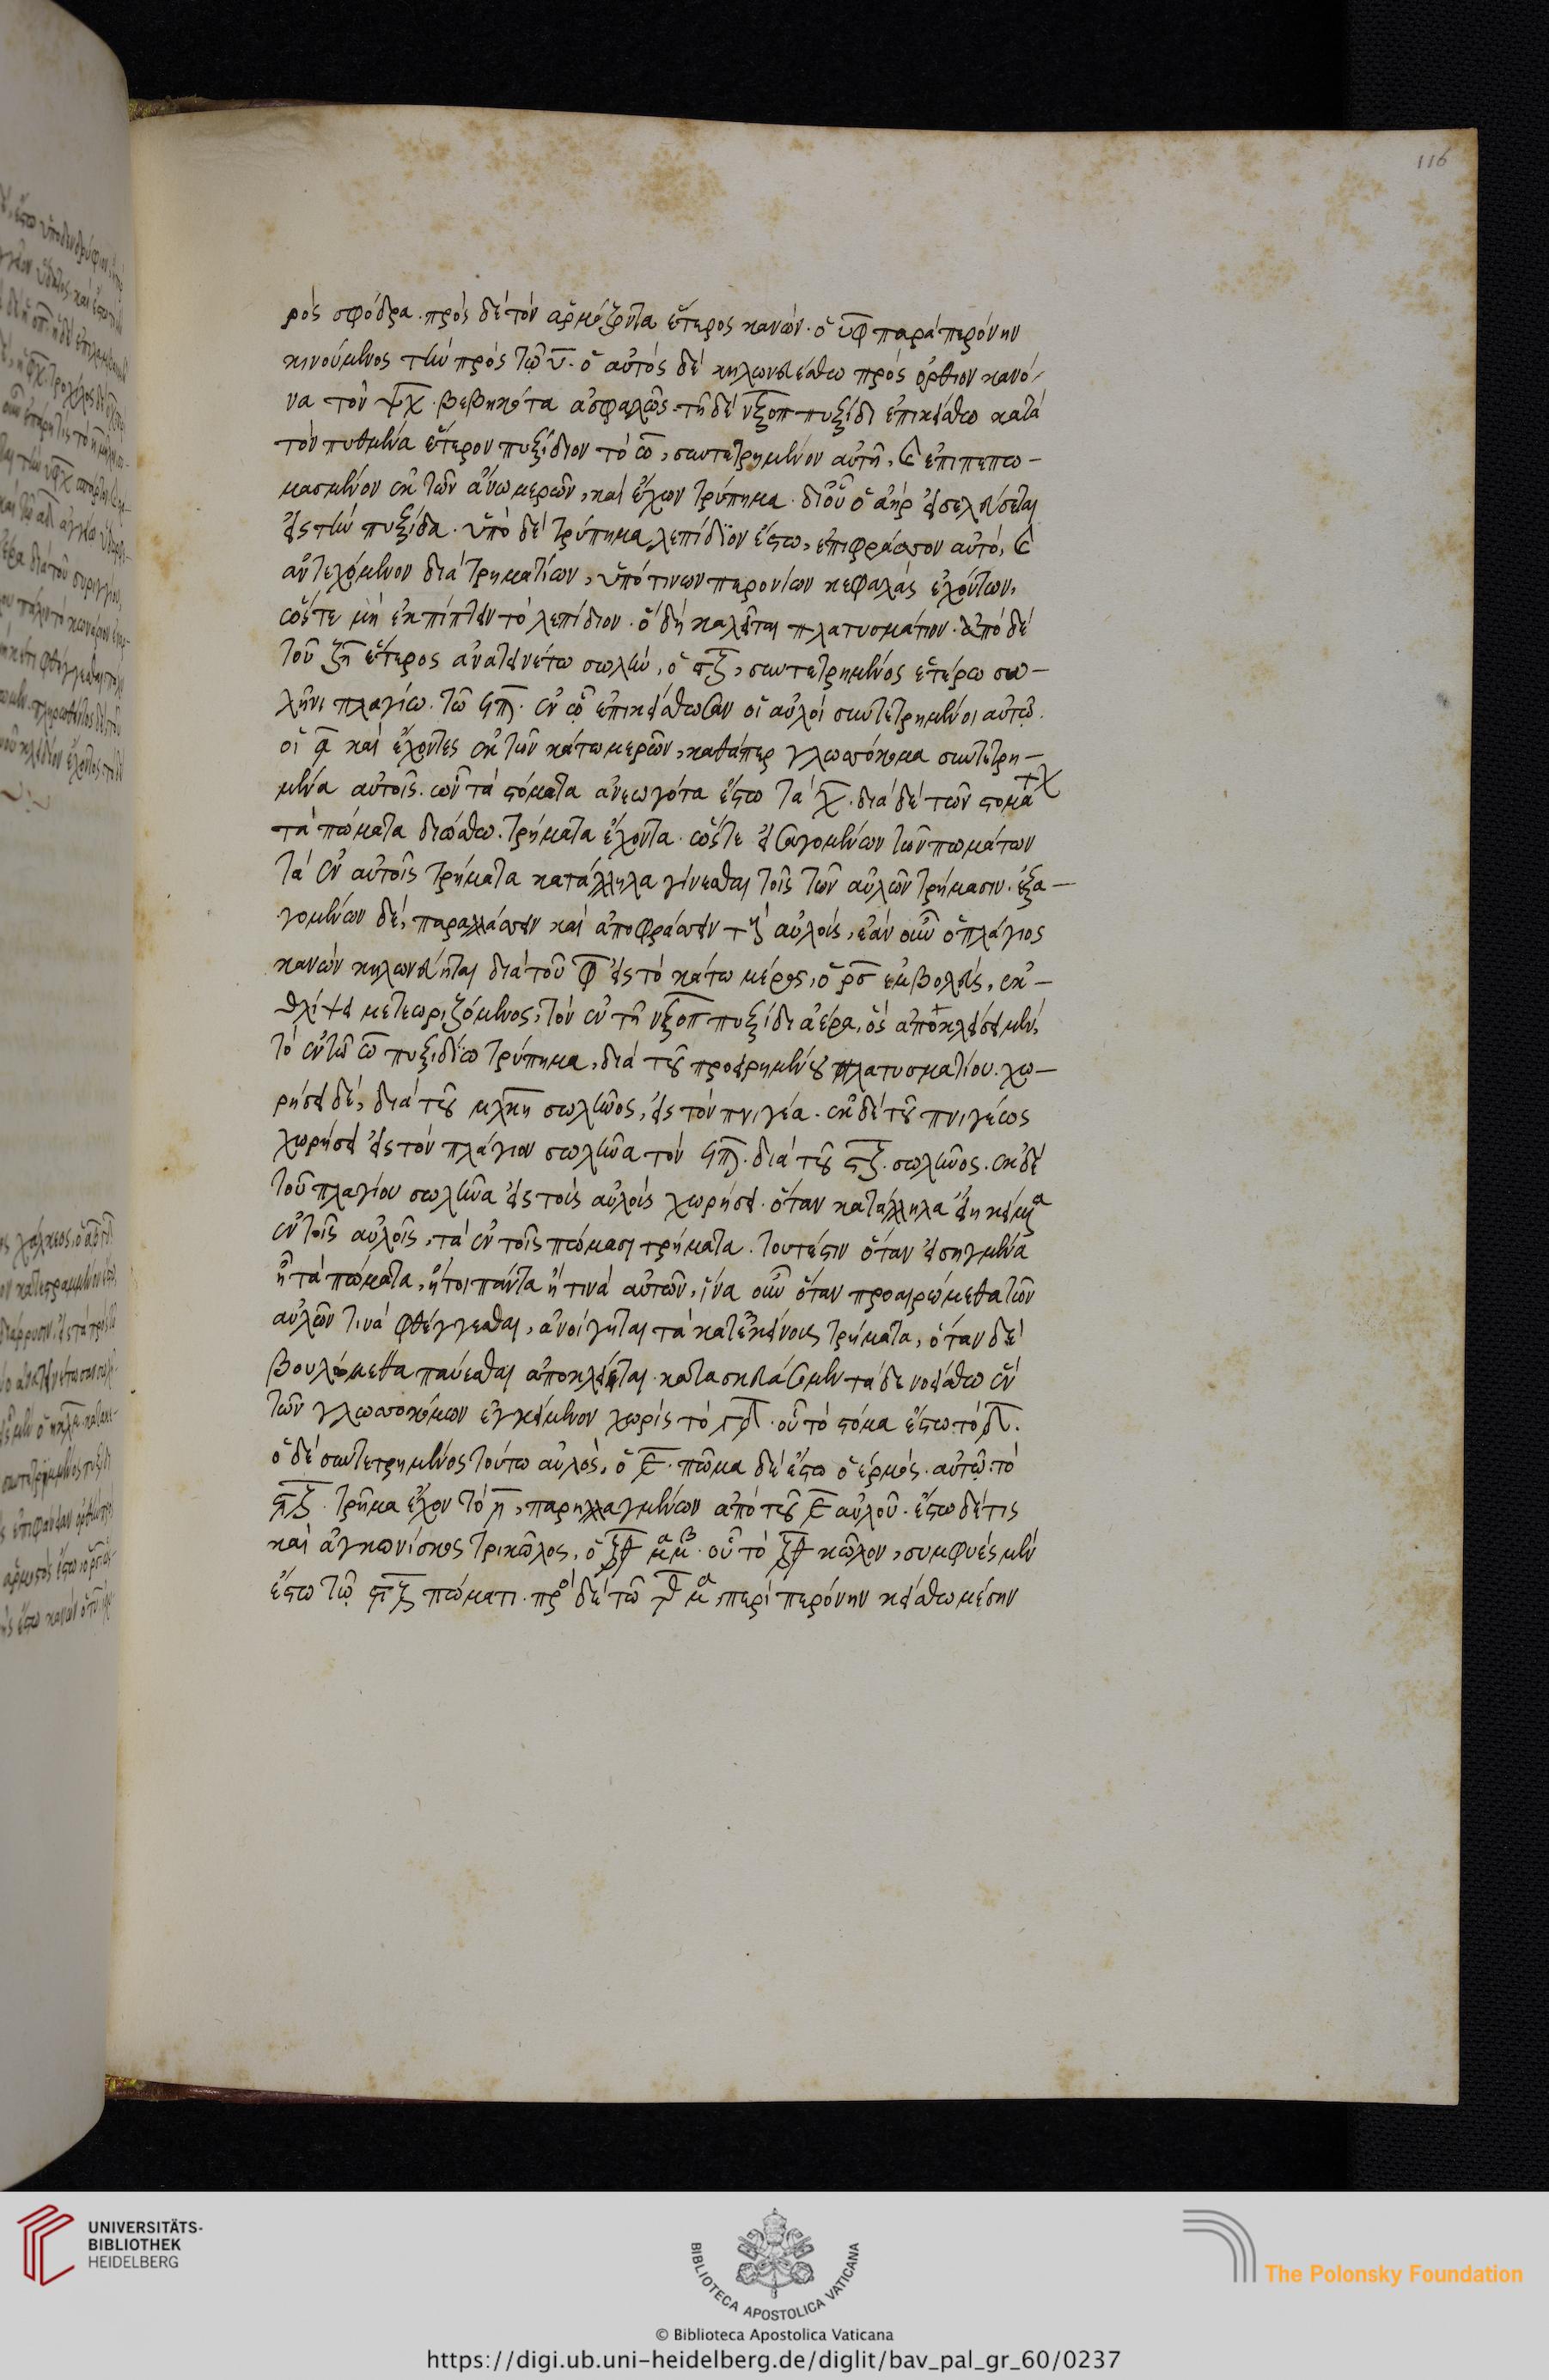 116
ρὸς σφόδρα. πρὸς δὲ τὸν ἁρμόζοντα ἕτερος κανὼν. ὁ υφ παρὰ περόνην
κινούμενος τὴν πρὸς τῷ υ. ὁ αὐτὸς δὲ κηλωνευέσθω πρὸς ὄρθιον κανό-
να τὸν ψχ. βεβηκότα ἀσφαλῶς. τῇ δὲ νξοπ πυξίδι ἐπικείσθω κατὰ
τὸν πυθμένα ἕτερον πυξίδιον τὸ ω, συντετρημένον αὐτῇ, καὶ ἐπιπεπω-
μασμένον ἐκ τῶν ἄνω μερῶν, καὶ ἔχων τρύπημα. δι' οὗ ὁ ἀὴρ εἰσελεύσεται
εἰς τὴν πυξίδα. ὑπὸ δὲ τρύπημα λεπίδιον ἔστω, ἐπιφράσσον αὐτό, καὶ
ἀντεχόμενον διὰ τρηματίων, ὑπό τινων περονίων κεφαλὰς ἐχόντων,
ὥστε μὴ ἐκπίπτειν τὸ λεπίδιον. ὃ δὴ καλεῖται πλατυσμάτιον. ἀπὸ δὲ
τοῦ ζη ἕτερος ἀνατεινέτω σωλὴν, ὁ ςξ, συντετρημένος ἑτέρω σω-
λῆνι πλαγίω. τῶ ϛπλ. ἐν ᾧ ἐπικείσθωσαν οἱ αὐλοὶ συντετρημένοι αὐτῷ.
οἱ ᾳ καὶ ἔχοντες ἐκ τῶν κάτω μερῶν, καθάπερ γλωσσόκομα συντετρη-
μένα αὐτοῖς. ὧν τὰ στόματα ἀνεωγότα ἔστω τὰ χ. διὰ δὲ τῶν στομά τχ
τὰ πώματα διώσθω. τρήματα ἔχοντα. ὥστε εἰσαγομένων τῶν πωμάτων
τὰ ἐν αὐτοῖς τρήματα κατάλληλα γίνεσθαι τοῖς τῶν αὐλῶν τρήμασιν. ἐξα-
γομένων δὲ, παραλλάσσειν καὶ ἀποφράσσειν τοὺς αὐλοὺς, ἐὰν οὖν ὁ πλάγιος
κανὼν κηλωνεύηται διὰ τοῦ φ εἰς τὸ κάτω μέρος, ὁ ρσ ἐμβολεὺς, ἐκ-
θλίψει μετεωριζόμενος, τὸν ἐν τῇ νξοπ πυξίδι ἀέρα, ὃς ἀποκλείσει μὲν,
τὸ ἐν τῷ ω πυξιδίω τρύπημα, διὰ τοῦ προειρημένου πλατυσματίου. χω-
ρήσει δὲ, διὰ τοῦ μλκη σωλῆνος, εἰς τὸν πνιγέα. ἐκ δὲ τοῦ πνιγέως
χωρήσει εἰς τὸν πλάγιον σωλῆνα τὸν ϛπλ. διὰ τοῦ ςξ. σωλῆνος. ἐκ δὲ
τοῦ πλαγίου σωλῆνα εἰς τοὺς αὐλοὺς χωρήσει. ὅταν κατάλληλα εἴη κείμενα
ἐν τοῖς αὐλοῖς, τὰ ἐν τοῖς πώμασι τρήματα. τουτέστιν ὅταν εἰσηγμένα
ᾖ τὰ πώματα, ἤτοι πάντα ἤ τινα αὐτῶν, ἵνα οὖν ὅταν προαιρώμεθα τῶν
αὐλῶν τινὰ φθέγγεσθαι, ἀνοίγηται τὰ κατ' ἐκείνους τρήματα, ὅταν δὲ
βουλόμεθα παύεσθαι ἀποκλείηται κατασκευάσομεν τάδε νοείσθω ἓν
τῶν γλωσσοκόμων ἐγκείμενον χωρὶς τὸ γδ. οὗ τὸ στόμα ἔστω τὸ δ.
ὁ δὲ συντετρημένος τούτω αὐλὸς, ὁ ε. πῶμα δὲ ἔστω ὁ ἑρμός. αὐτῷ τὸ
ςζ. τρῆμα ἔχον τὸ η, παρηλλαγμένων ἀπὸ τοῦ ε αὐλοῦ. ἔστω δέ τις
καὶ ἀγκωνίσκος τρικῶλος, ὁ ζθ μα μβ. οὗ τὸ ζθ κῶλον, συμφυὲς μὲν
ἔστω τῷ ςζ πώματι. πρὸς δὲ τῶ θ μα, περὶ περόνην κείσθω μέσην
UNIVERSITÄTS-
BIBLIOTHEK
HEIDELBERG
BIBLIOTECA APOSTOLICA VATICANA
The Polonsky Foundation
© Biblioteca Apostolica Vaticana
https://digi.ub.uni-heidelberg.de/diglit/bav_pal_gr_60/0237